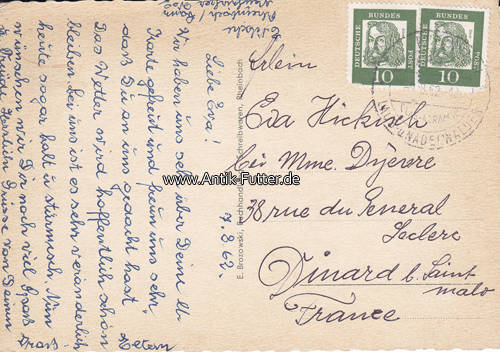 7.8.62.
Liebe Eva!
Wir haben uns sehr über Deine
Karte gefreut und freuen uns sehr,
daß Du an uns gedacht hast.
Das Wetter wird hoffentlich schön
bleiben. Bei uns ist es sehr veränderlich
heute sogar kalt u. stürmisch. Nun
wünschen wir Dir noch viel Spaß
u. Freude. Herzliche Grüsse von Deinen
Eltern
DEUTSCHE BUNDES POST
10
DEUTSCHE BUNDES POST
10
Eva Hickisch
bei Mme.
78 rue du General
Leclerc
Dinard b. Saint
malo
France
E. Brozowski, Buchhandlung Schreibwaren, Rheinbach
www.Antik-Futter.de